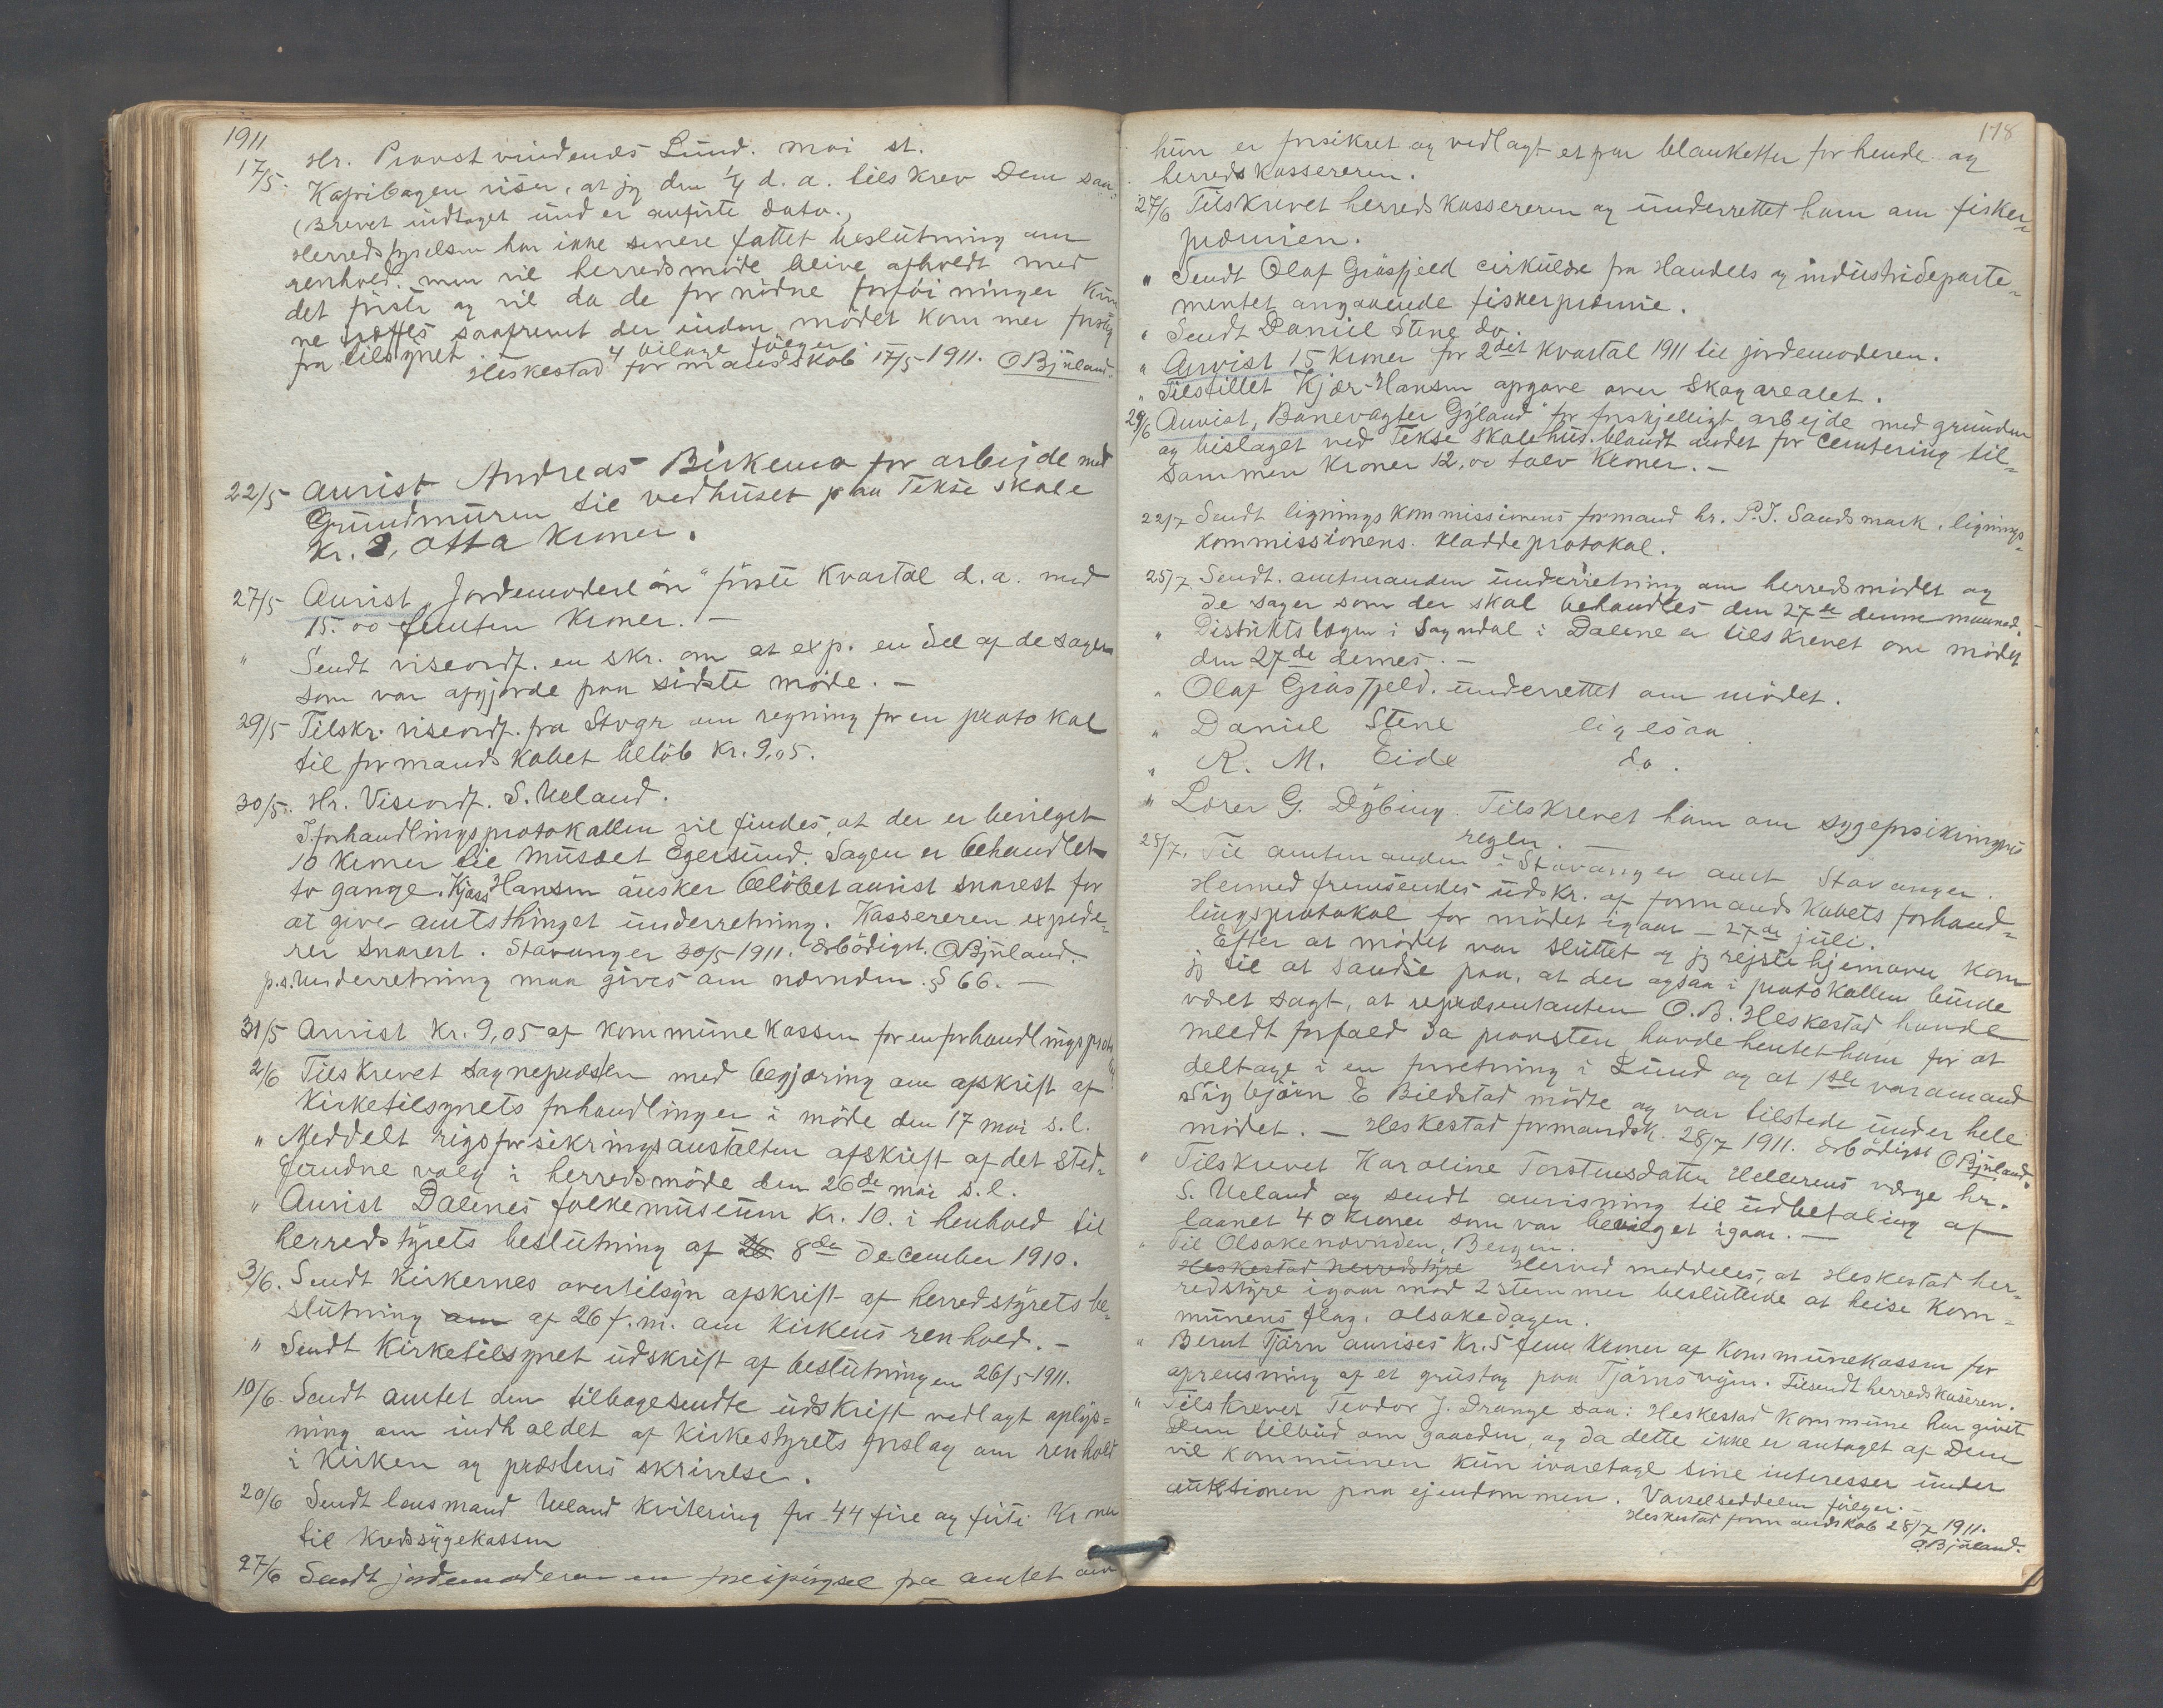 1911
17/5. Hr. Provst vindenes Lund. moi st.
Kopribogen viser, at jeg den 1/4 d. a. tilskrev Dem saa:
(Brevet indtaget under anførte dato.)
Herredstyrelsen har ikke senere fattet beslutning om
renhold. men vil herredsmöde blive afholdt med
det förste og vil da de fornödne forföininger kun
ne træffes saafremt der inden mödet kommer forslag
fra tilsynet. 4 bilage fölger.
Heskestad formandskab 17/5-1911. O Bjuland.
22/5 Anvist Andreas Birkemo for arbejde med
Grundmuren til vedhuset paa Tekse skole
Kr. 8, otta Kroner.
27/5 Anvist "Jordemoderlön" förste Kvartal d.a. med
15.00 femten Kroner. —
" Sendt viseordf. en skr. om at exp. en del af de sager
som var afgjorde paa sidste möde. —
29/5 Tilskr. viseordf. fra Stvgr om regning for en protokol
til formandskabet belöb Kr. 9,05.
30/5. Hr. Viseordf. S. Ueland.
I forhandlingsprotokollen vil findes, at der er bevilget
10 Kroner til museet Egersund. Sagen er behandlet
to gange. Hansen önsker belöbet anvist snarest for
at give amtsthinget underretning. Kassereren expede=
rer snarest. Stavanger 30/5-1911. Ærbödigst. O Bjuland.
p.s. Underretning maa gives om nævnden. § 66. —
31/5 Anvist Kr. 9,05 af Kommunekassen for en forhandlingsprotokol
2/6 Tilskrevet sognepræsten med begjæring om afskrift af
Kirketilsynets forhandlinger i möde den 17 mai s.l.
" Meddelt rigsforsikringsanstalten afskrift af det sted=
fundne valg i herredsmöde den 26de mai s.l.
" Anvist Dalenes folkemuseum Kr. 10. i henhold til
herredstyrets beslutning af 26 8de December 1910.
3/6. Sendt Kirkernes overtilsyn afskrift af herredstyrets be=
slutning om af 26 f.m. om Kirkens renhold. —
" Sendt Kirketilsynet udskrift af beslutningen 26/5-1911.
10/6 Sendt amtet den tilbagesendte udskrift vedlagt oplys=
ning om indholdet af Kirkestyrets forslag om renhold
i Kirken og præstens skrivelse.
20/6 Sendt lensmand Ueland Kvitering for 44 fire og firti Kroner
til Kredssygekassen
27/6 Sendt jordemoderen en forespörgsel fra amtet om
178
hun er forsikret og vedlagt et par blanketter for hende og
herredskassereren.
27/6 Tilskrevet herredskassereren og underrettet ham om fisker=
præmien.
" Sendt Olaf Gråsfjeld cirkulære fra Handels og industrideparte=
mentet angaaende fiskerpræmie.
" Sendt Daniel Stene do.
" Anvist 15 Kroner for 2det Kvartal 1911 til jordemoderen.
" Tilstillet Kjær-Hansen opgave over Skogarealet.
29/6 Anvist "Banevogter Gyland" for forskjelligt arbejde med grunden
og bislaget ved Tekse skolehus. blandt andet for cementering til=
sammen Kroner 12,00 tolv Kroner. —
22/7 Sendt ligningskommissionens formand hr. P.J. Sandsmark, lignings=
kommissionens. Kladdeprotokol.
25/7 Sendt. amtmanden underretning om herredsmödet og
de sager som der skal behandles den 27de denne maaned.
" Distriktslægen i Sogndal i Dalene er tilskrevet om mödet
den 27de dennes. —
" Olaf Gråsfjeld. underrettet om mödet.
" Daniel Stene ligesaa
" R. M. Eide do.
" Lærer G. Dybing. Tilskrevet ham om sygeforsikrings
reglen. —
25/7. Til amtmanden i Stavanger amt Stavanger.
Hermed fremsendes udskr. af formandskabets forhand=
lingsprotokol for mödet igaar — 27de juli.
Efter at mödet var sluttet og jeg rejste hjemover kom
jeg til at sandse paa, at der ogsaa i protokollen burde
været sagt, at repræsentanten O.B. Heskestad havde
meldt forfald da provsten havde hentet ham for at
deltage i en forretning i Lund og at 1ste varamand
Sigbjörn E Bilstad mödte og var tilstede under hele
mödet. — Heskestad formandsk. 28/7 1911. Ærbödigst O Bjuland.
" Tilskrevet Karoline Torstensdatter Hellerens værge hr.
S. Ueland og sendt anvisning til udbetaling af
laanet 40 kroner som var bevilget igaar. —
" Til Olsokenævnden, Bergen.
Heskestad herredstyre Herved meddeles, at Heskestad her=
redstyre igaar mod 2 stemmer besluttede at heise Kom=
munens flag. olsokedagen.
" Bernt Tjörn anvises Kr. 5 fem Kroner af Kommunekassen for
oprensning af et grustag paa Tjörnsvejen. Tilsendt herredskaseren.
" Tilskrevet Teodor J. Drange saa: Heskestad Kommune har givet
Dem tilbud om gaarden, og da dette ikke er antaget af Dem
vil kommunen kun ivaretage sine interesser under
auktionen paa ejendommen. Varselseddelen fölger. —
Heskestad formandskab 28/7 1911.
O. Bjuland.